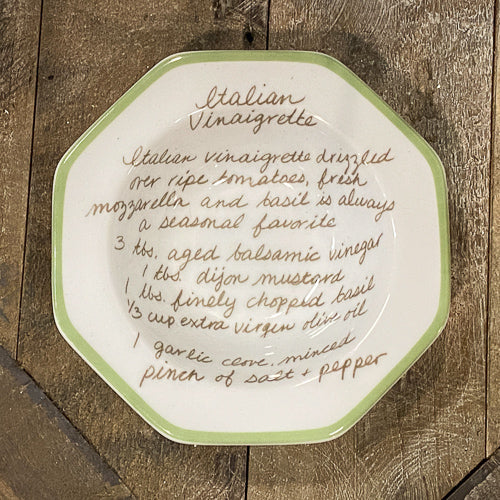 Italian
Vinaigrette
Italian vinaigrette drizzled
over ripe tomatoes, fresh
mozzarella and basil is always
a seasonal favorite
3 tbs. aged balsamic vinegar
1 tbs. dijon mustard
1 tbs. finely chopped basil
1/3 cup extra virgin olive oil
1 garlic clove, minced
pinch of salt + pepper